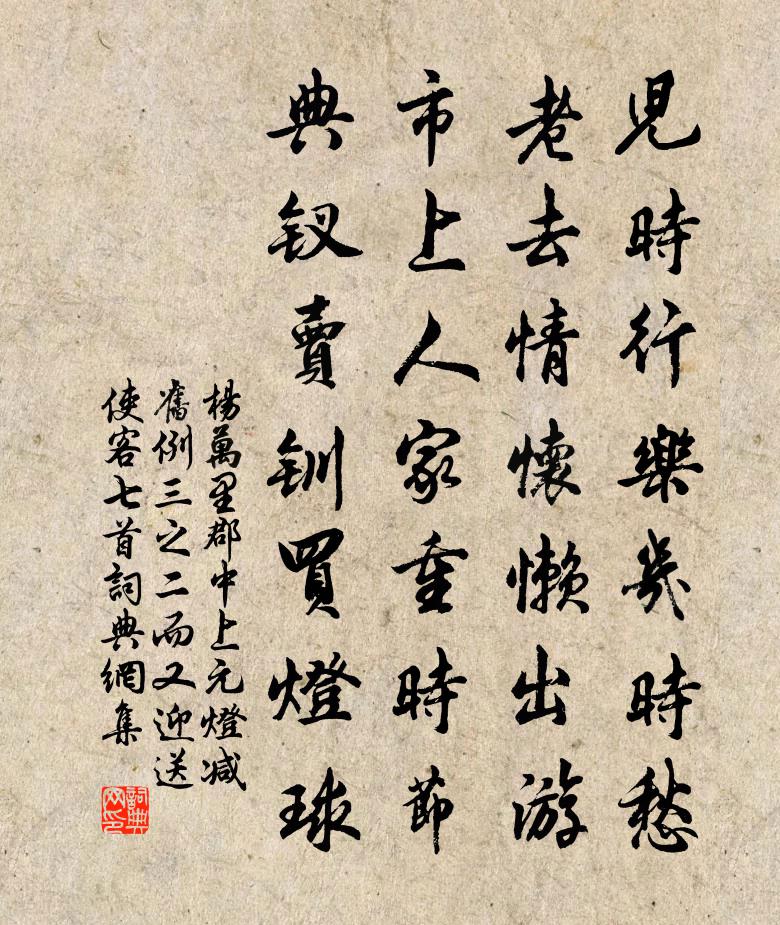 兒時行樂幾時愁
老去情懷懒出游
市上人家重時節
典釵賣釧買燈球
楊萬里郡中上元燈减
舊例三之二而又迎送
使客七首詞典網集
詞典
网印